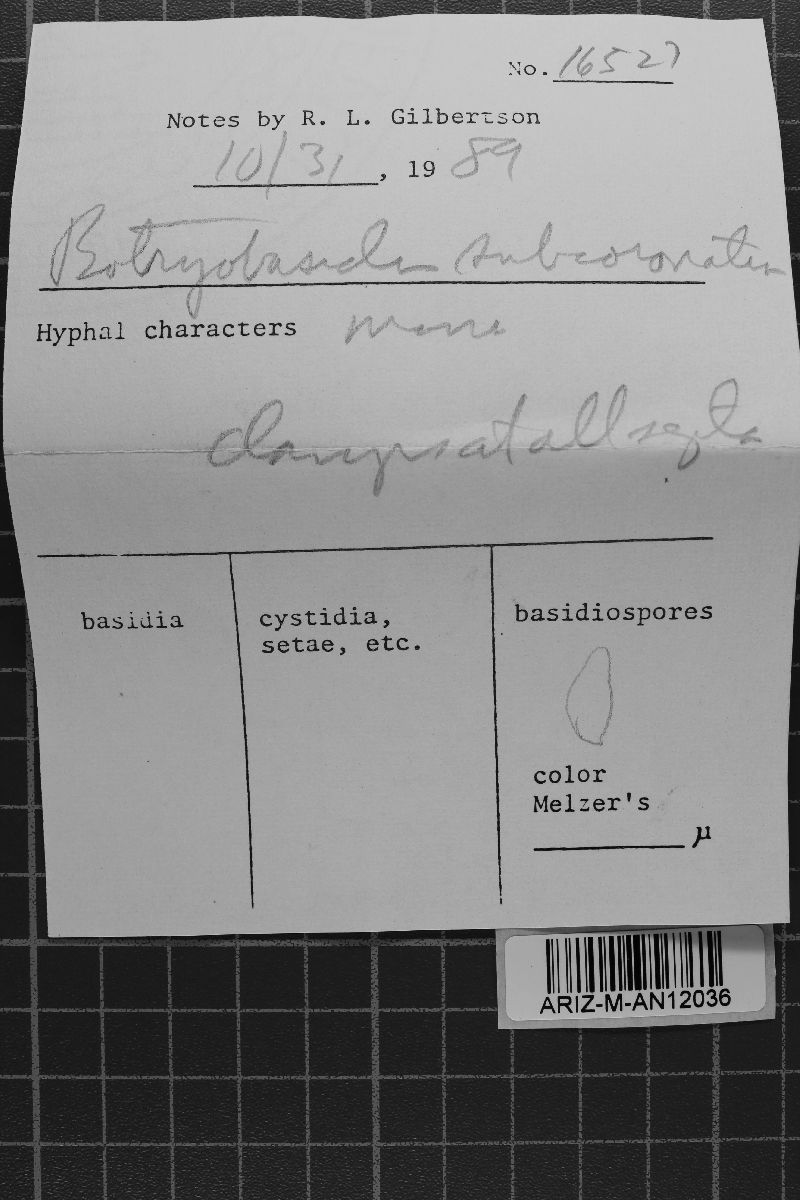 No. 16527
Notes by R. L. Gilbertson
10/31, 19 89
Botryobasidium subcoronatum
Hyphal characters
clamps at all septa
basidia
cystidia,
setae, etc.
basidiospores
color
Melzer's
μ
ARIZ-M-AN12036